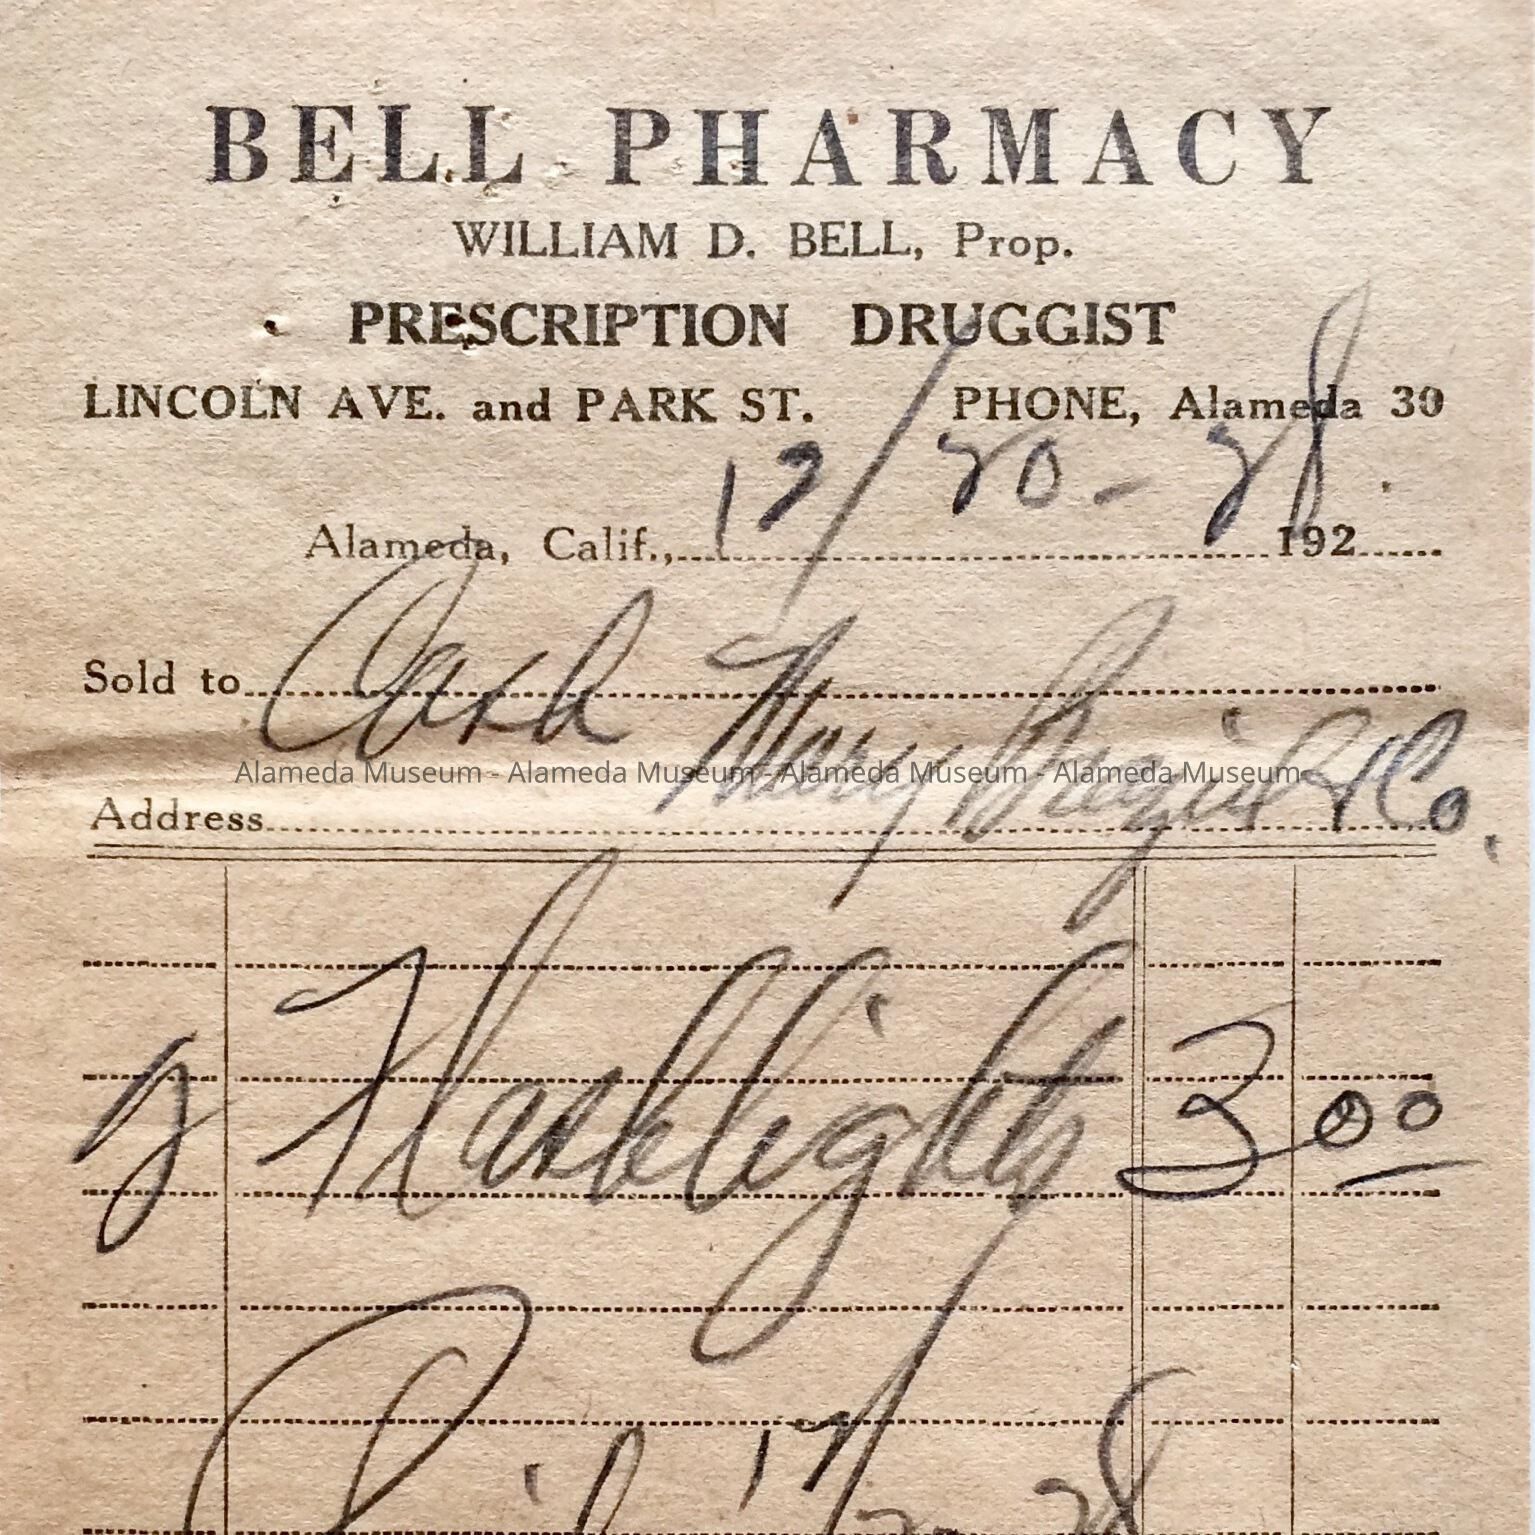 BELL PHARMACY
WILLIAM D. BELL, Prop.
PRESCRIPTION DRUGGIST
LINCOLN AVE. and PARK ST. PHONE, Alameda 30
Alameda, Calif., 12/20-28. 192
Sold to Cash
Alameda Museum - Alameda Museum - Alameda Museum - Alameda Museum
Address & Co.
Flashlights 3 00
28